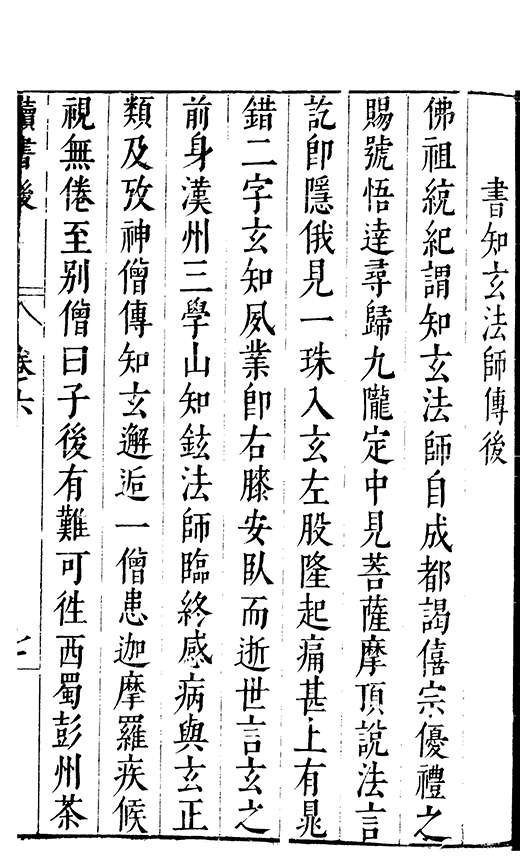 書知玄法師傳後
佛祖統紀謂知玄法師自成都謁僖宗優禮之
賜號悟達尋歸九隴定中見菩薩摩頂說法言
訖卽隱俄見一珠入玄左股隆起痛甚上有鼂
錯二字玄知夙業卽右膝安臥而逝世言玄之
前身漢州三學山知鉉法師臨終感病與玄正
類及攷神僧傳知玄邂逅一僧患迦摩羅疾候
視無倦至别僧曰子後有難可徃西蜀彭州茶
讀書後
卷六